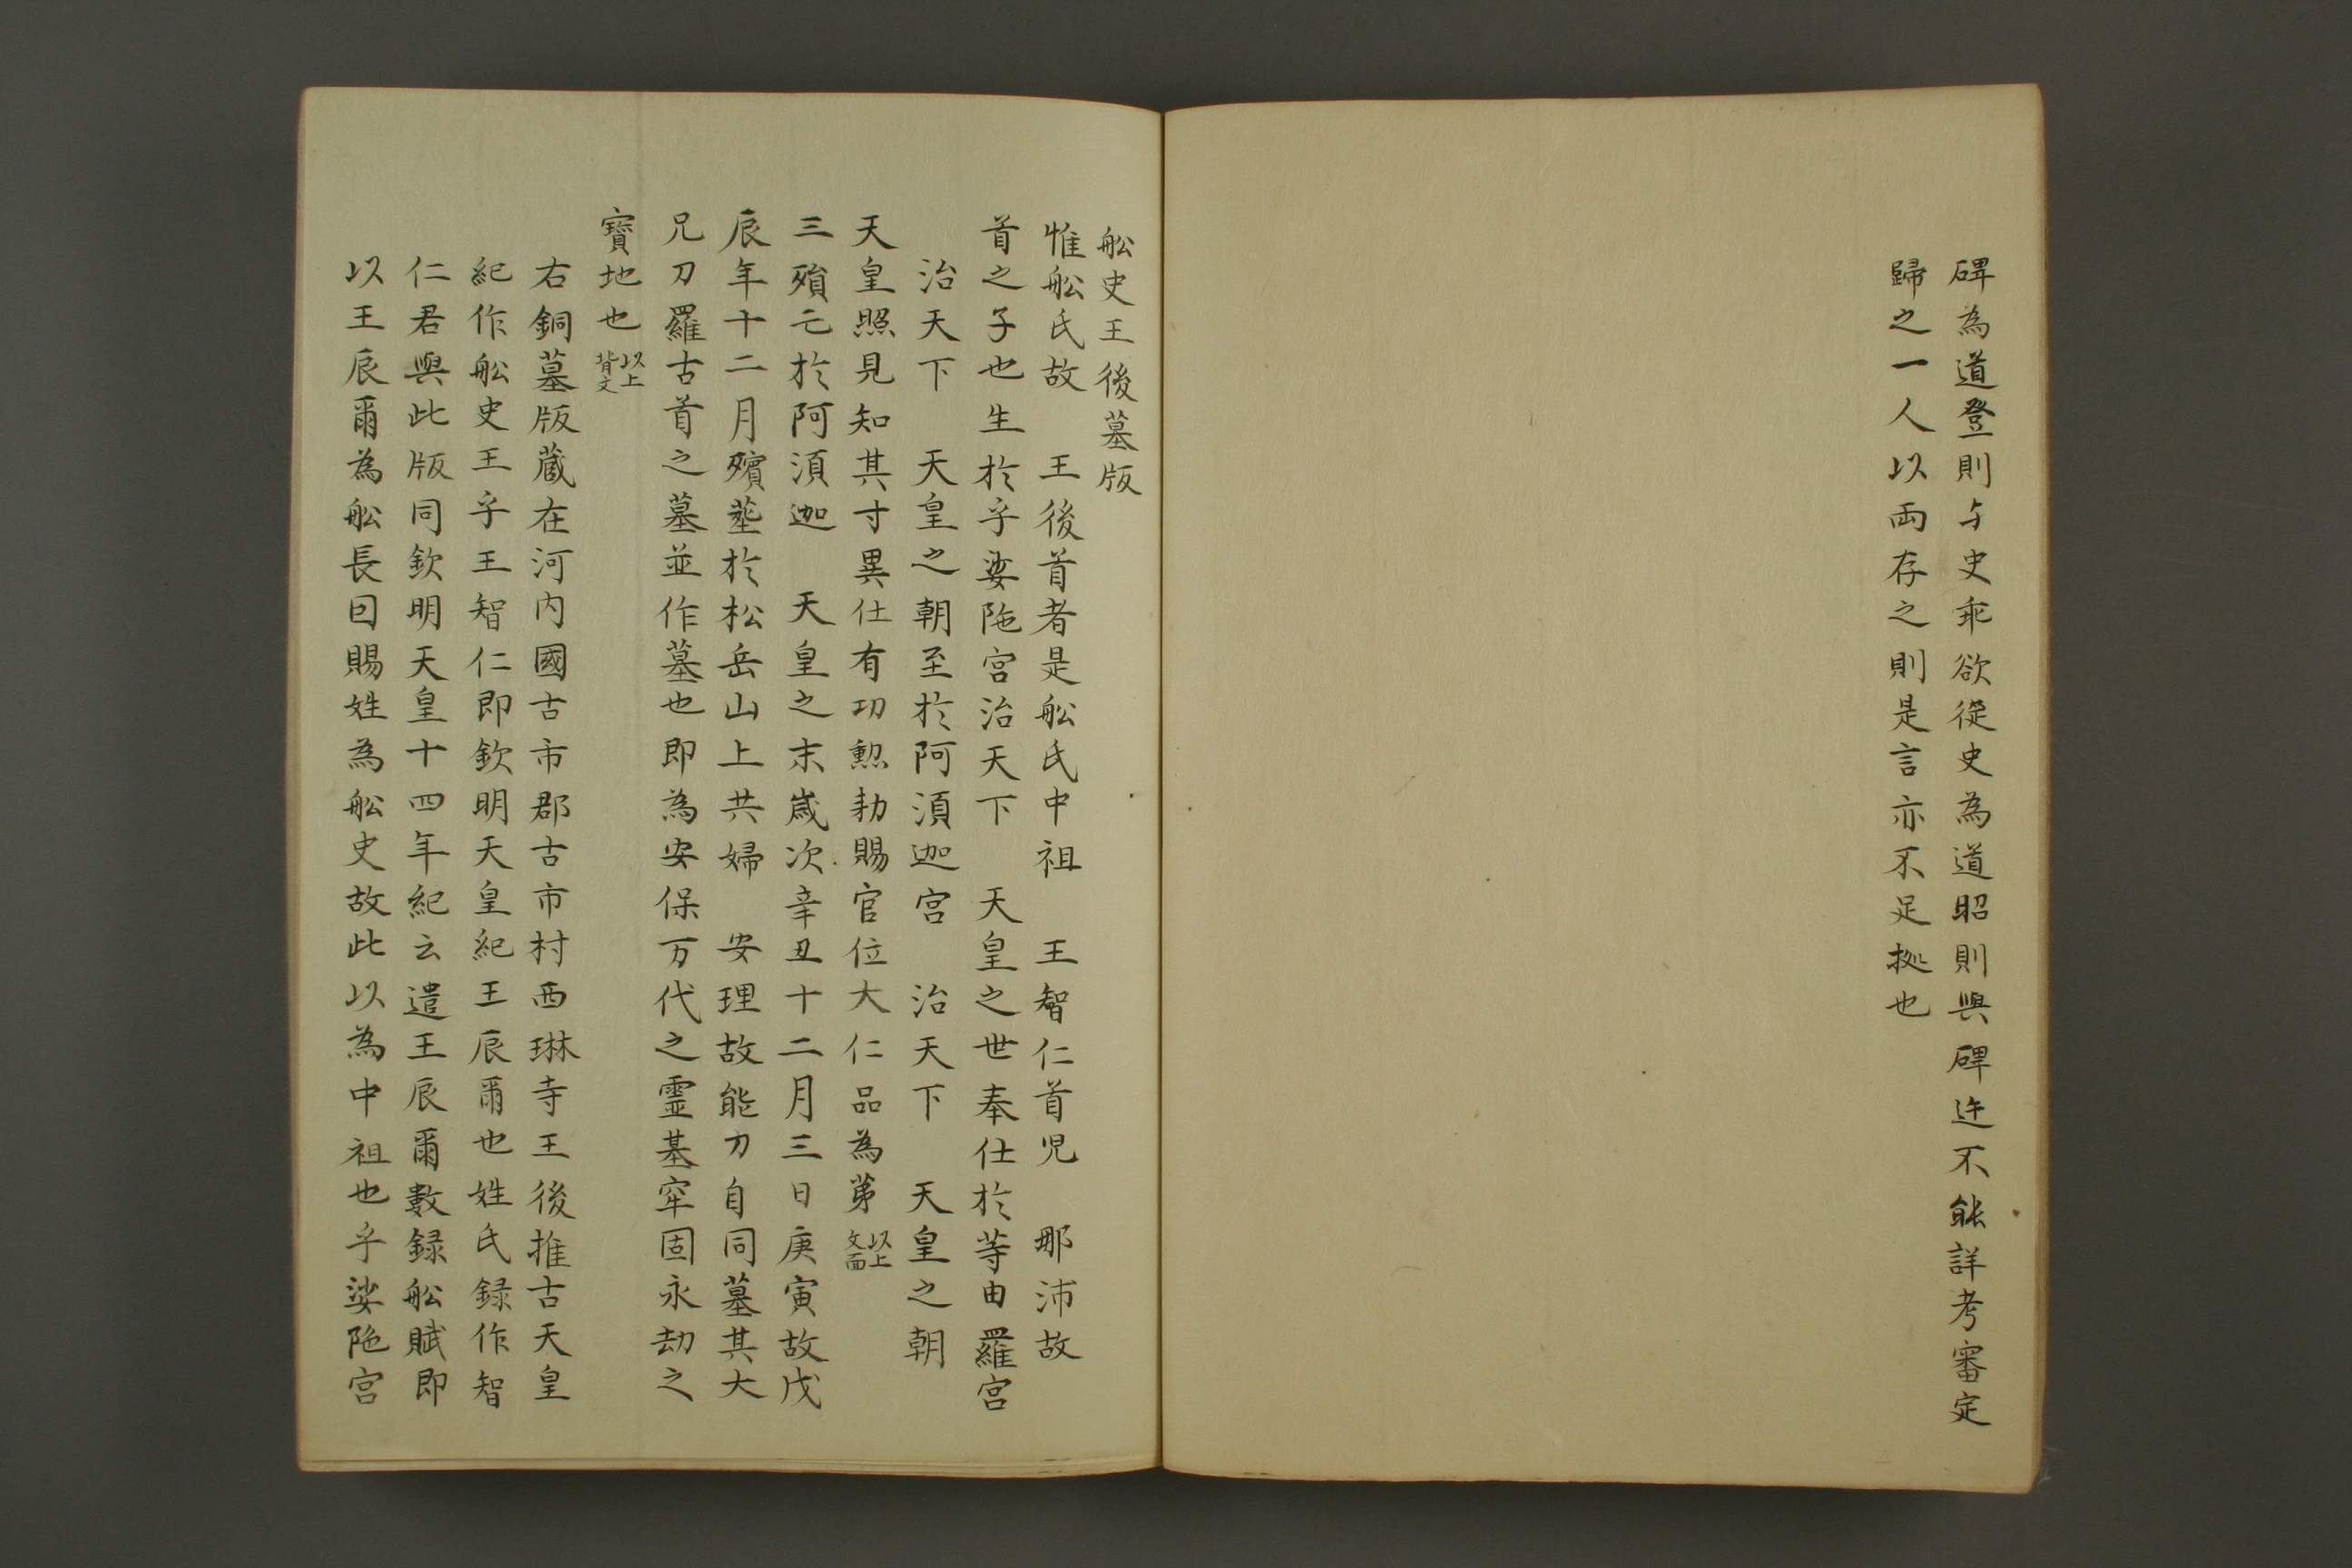 碑為道登則与史乖欲從史為道昭則與碑迕不能詳考審定
歸之一人以両存之則是言亦不足拠也
舩史王後墓版
惟舩氏故　王後首者是舩氏中祖　王智仁首児　那沛故
首之子也生於乎娑陁宮治天下　天皇之世奉仕於等由羅宮
治天下　天皇之朝至於阿須迦宮　治天下　天皇之朝
天皇照見知其才異仕有功勲勅賜官位大仁品為第以上文面
三殞亡於阿須迦　天皇之末歳次辛丑十二月三日庚寅故戊
辰年十二月殯葬於松岳山上共婦　安理故能刀自同墓其大
兄刀羅古首之墓並作墓也即為安保万代之霊基牢固永劫之
寶地也以上背文
右銅墓版蔵在河内國古市郡古市村西琳寺王後推古天皇
紀作舩史王乎王智仁即欽明天皇紀王辰爾也姓氏録作智
仁君與此版同欽明天皇十四年紀云遣王辰爾數録舩賦即
以王辰爾為舩長囙賜姓為舩史故此以為中祖也乎娑陁宮